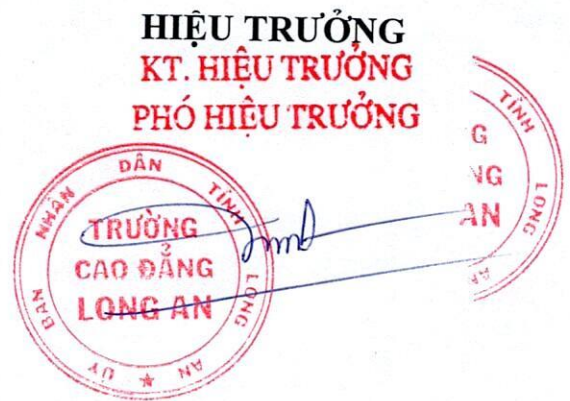 HIỆU TRƯỞNG
KT. HIỆU TRƯỞNG
PHÓ HIỆU TRƯỞNG
ỦY BAN NHÂN DÂN TỈNH LONG AN
TRƯỜNG
CAO ĐẲNG
LONG AN
TỈNH LONG AN
G
NG
AN